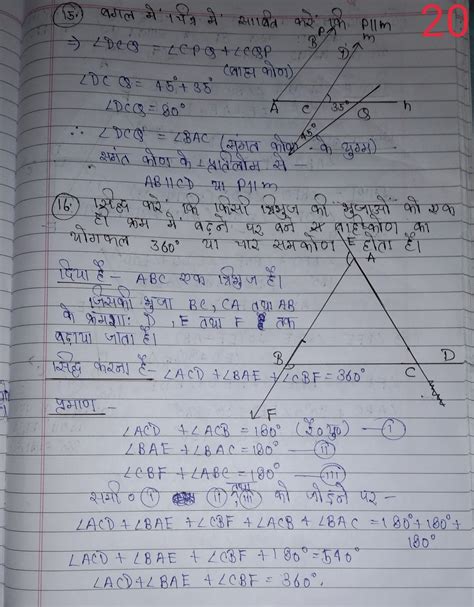 20
15. बगल में चित्र में साबित करें कि P||m
⇒ ∠DCQ = ∠CPQ + ∠CQP
(बाह्य कोण)
∠DCQ = 45°+35°
∠DCQ = 80°
∴ ∠DCQ = ∠BAC (संगत कोण के युग्म)
संगत कोण के प्रतिलोम से -
AB||CD या P||m
P
B
D
m
A
C
35°
Q
n
45°
16. सिद्ध करें कि किसी त्रिभुज की भुजाओं को एक
ही क्रम में बढ़ाने पर बने से बाह्यकोण का
योगफल 360° या चार समकोण होता है।
दिया है - ABC एक त्रिभुज है।
जिसकी भुजा BC, CA तथा AB
के क्रमशः D, E तथा F तक
बढ़ाया जाता है।
E
A
B
C
D
F
सिद्ध करना है - ∠ACD + ∠BAE + ∠CBF = 360°
प्रमाण -
∠ACD + ∠ACB = 180° (रै० यु०) - I
∠BAE + ∠BAC = 180° - II
∠CBF + ∠ABC = 180° - III
समी० I II तथा III को जोड़ने पर -
∠ACD + ∠BAE + ∠CBF + ∠ACB + ∠BAC = 180° + 180° +
180°
∠ACD + ∠BAE + ∠CBF + 180° = 540°
∠ACD + ∠BAE + ∠CBF = 360°.